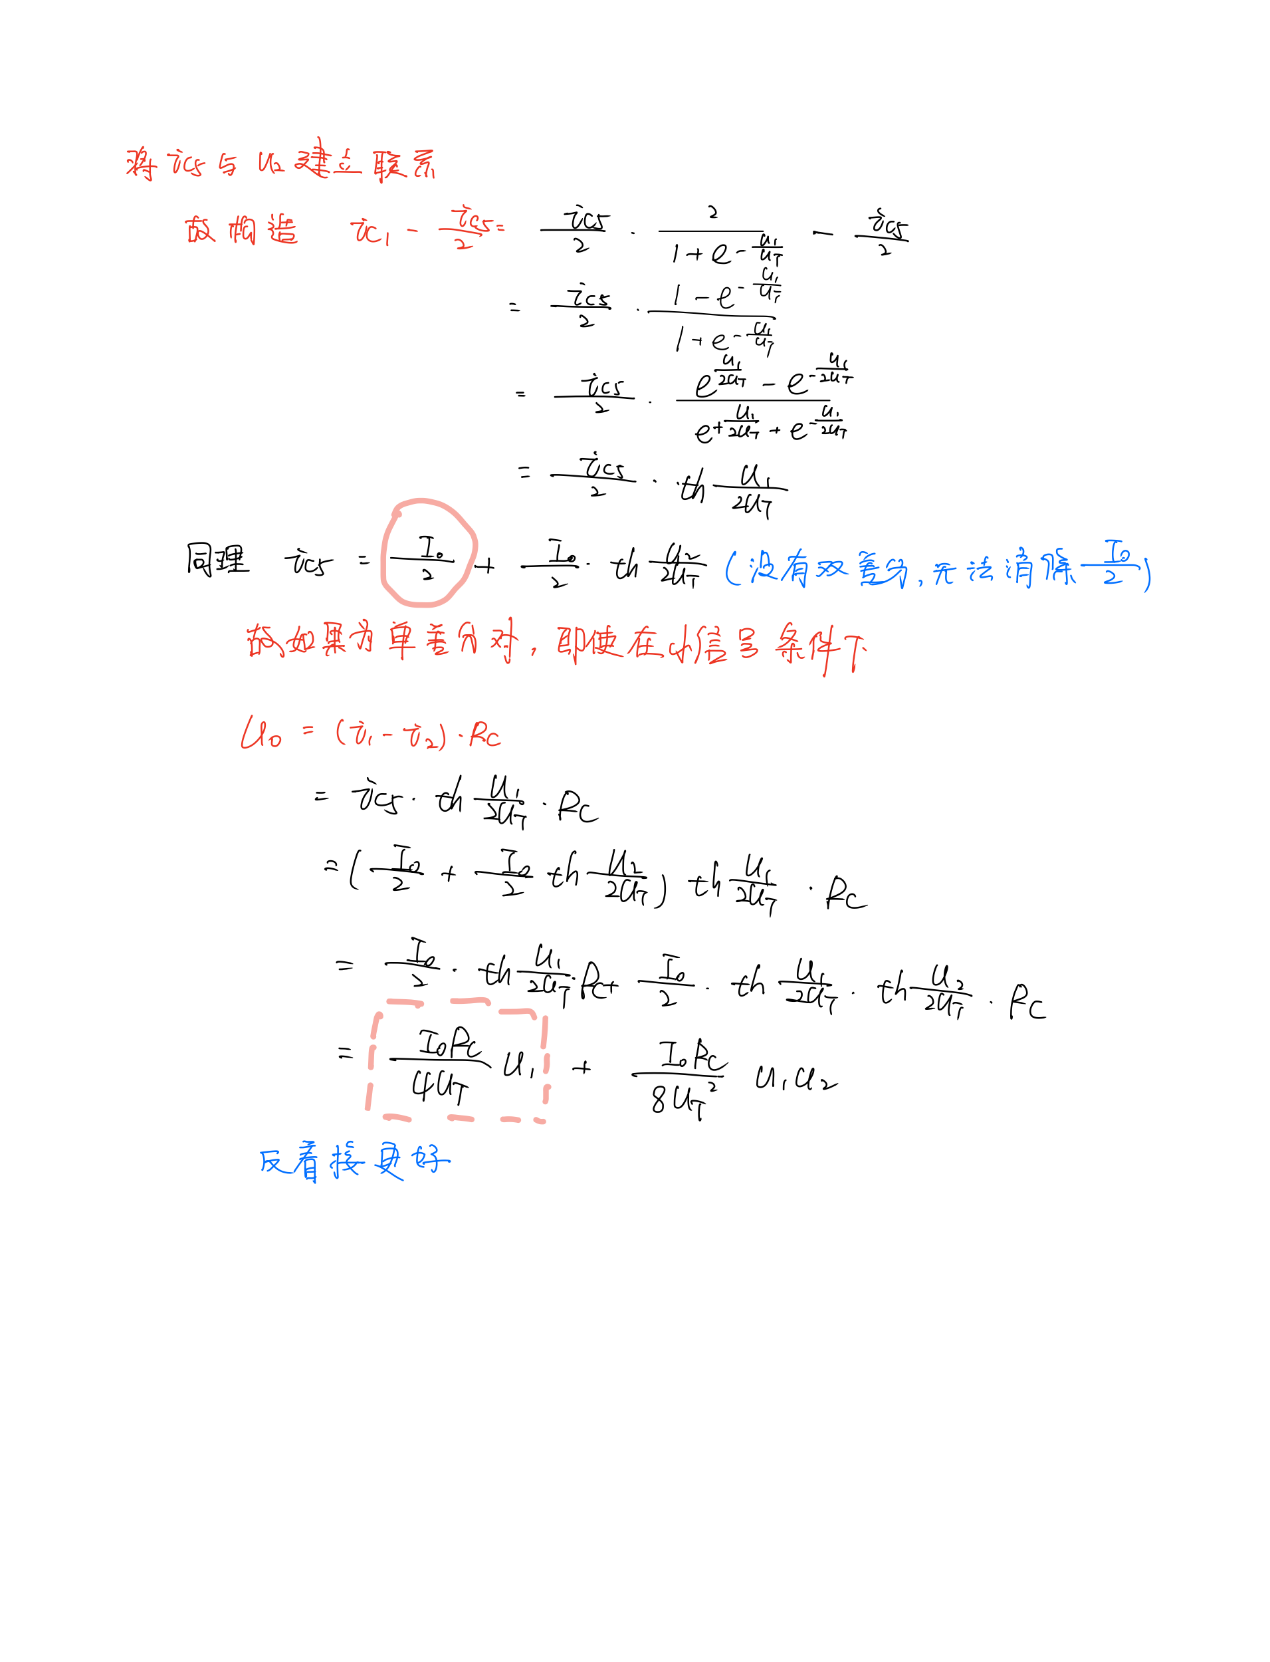 将 ic5 与 u2 建立联系
故构造 ic1 - ic5/2 = ic5/2 · 2/(1+e^(-u1/UT)) - ic5/2
= ic5/2 · (1-e^(-u1/UT))/(1+e^(-u1/UT))
= ic5/2 · (e^(u1/2UT) - e^(-u1/2UT))/(e^(+u1/2UT) + e^(-u1/2UT))
= ic5/2 · th u1/2UT
同理 ic5 = I0/2 + I0/2 · th u2/2UT (没有双差分,无法消除 I0/2)
故如果为单差分对,即使在小信号条件下
u0 = (i1 - i2) · RC
= ic5 · th u1/2UT · RC
= (I0/2 + I0/2 th u2/2UT) th u1/2UT · RC
= I0/2 · th u1/2UT · RC + I0/2 · th u1/2UT · th u2/2UT · RC
= I0RC/4UT u1 + I0RC/8UT² u1u2
反着接更好